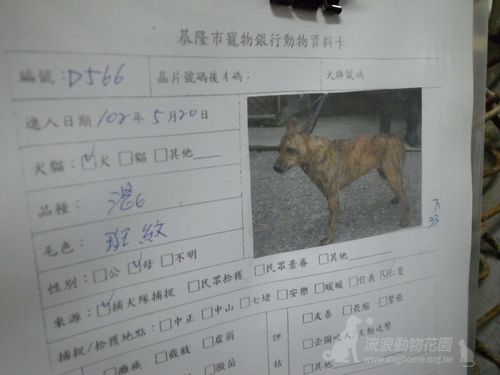 基隆市寵物銀行動物資料卡
編號:D566 晶片號碼後4碼: 犬牌號碼:
進入日期 102年 5月20日
犬貓: ☑犬 □貓 □其他
品種: 混
毛色: 斑紋
性別:□公 ☑母 □不明
來源:☑捕犬隊捕捉 □民眾拾獲 □民眾棄養 □其他
捕捉/拾獲地點:□中正 □中山 □七堵 □安樂 □暖暖 □信義 ☑仁愛
33
截肢 □虛弱 評 □友善 □畏縮 □緊張
估
□其他
流浪動物花園
www.doghome.org.tw